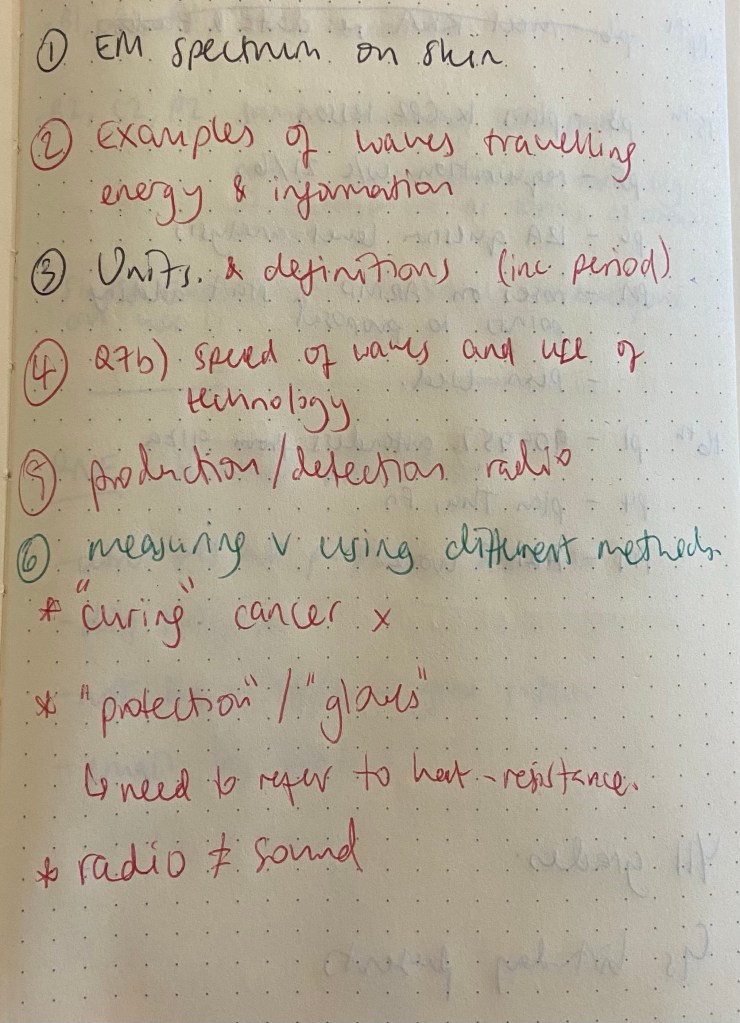 ① EM spectrum on skin
② Examples of waves travelling
energy & information
③ Units. & definitions (inc. period)
④ Q7b) speed of waves and use of
technology
⑤ production/detection radio
⑥ measuring v using different methods.
* "curing" cancer x
* "protection" / "gloves"
↳ need to refer to heat-resistance.
* radio ≠ sound